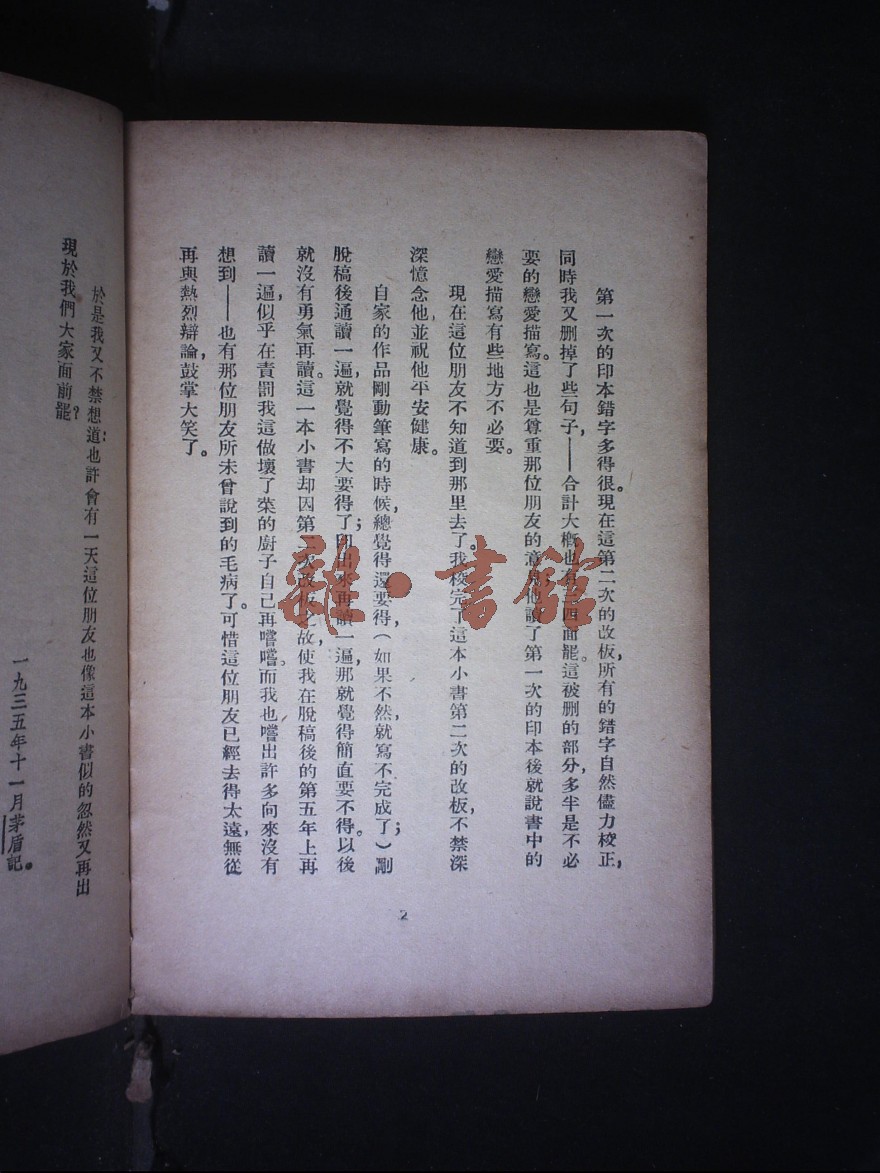 第一次的印本錯字多得很。現在這第二次的改板，所有的錯字自然儘力校正，
同時我又删掉了些句子，——合計大概也有三四面罷。這被删的部分，多半是不必
要的戀愛描寫。這也是尊重那位朋友的意見；他讀了第一次的印本後就說書中的
戀愛描寫有些地方不必要。
現在這位朋友不知道到那里去了。我校完了這本小書第二次的改板，不禁深
深憶念他，並祝他平安健康。
自家的作品剛動筆寫的時候，總覺得還要得（如果不然，就寫不完成了；）剛
脫稿後通讀一遍，就覺得不大要得了；印出來再讀一遍，那就覺得簡直要不得。以後
就沒有勇氣再讀。這一本小書却因第二次改板之故，使我在脫稿後的第五年上再
讀一遍，似乎在責罰我這做壞了菜的厨子自己再嚐嚐。而我也嚐出許多向來沒有
想到——也有那位朋友所未曾說到的毛病了。可惜這位朋友已經去得太遠，無從
再與熱烈辯論，鼓掌大笑了。
2
於是我又不禁想道：也許會有一天這位朋友也像這本小書似的忽然又再出
現於我們大家面前罷？
一九三五年十一月茅盾記。
雜·書館